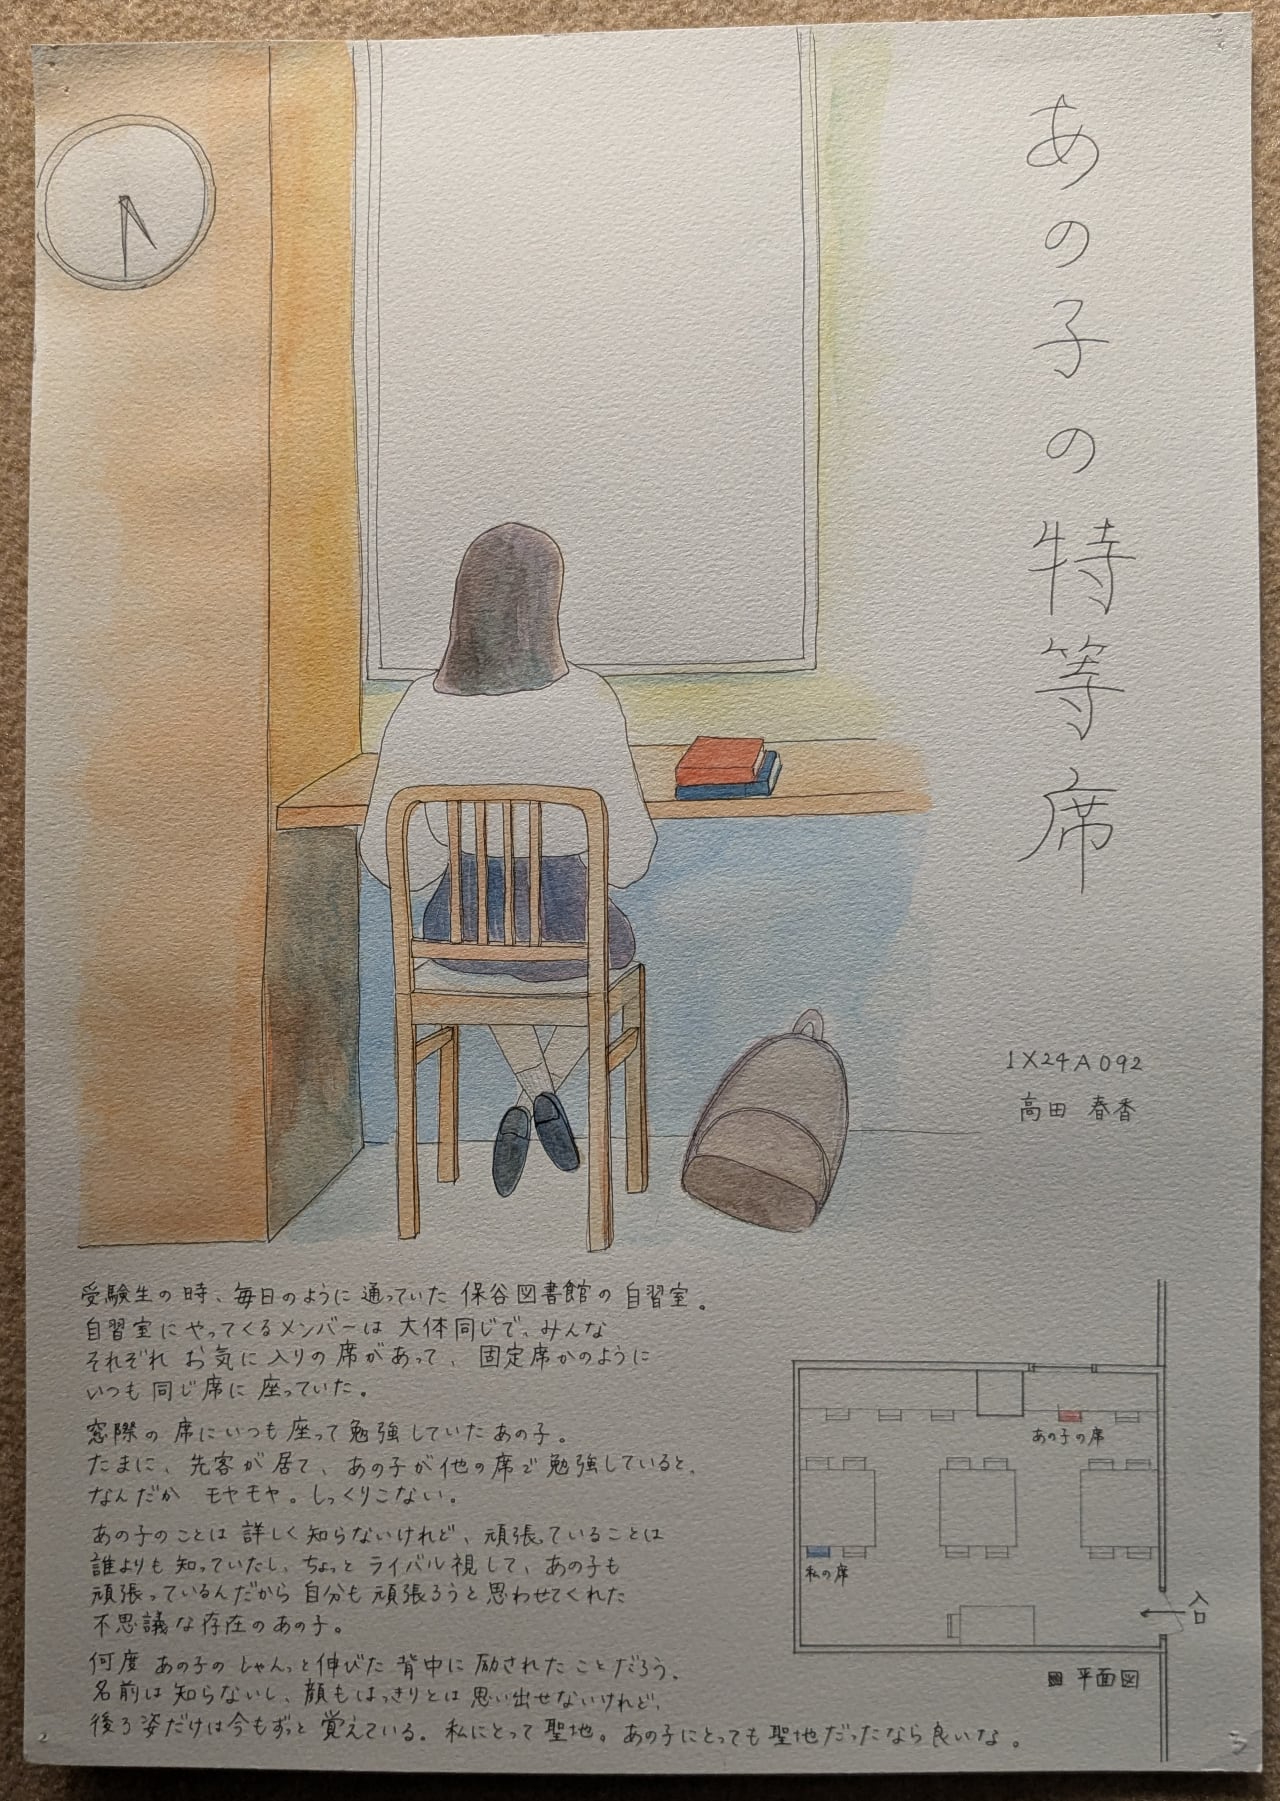 あの子の特等席
1X24A092
高田 春香
受験生の時、毎日のように通っていた保谷図書館の自習室。
自習室にやってくるメンバーは大体同じで、みんな
それぞれお気に入りの席があって、固定席かのように
いつも同じ席に座っていた。
窓際の席にいつも座って勉強していたあの子。
たまに、先客が居て、あの子が他の席で勉強していると、
なんだかモヤモヤ。しっくりこない。
あの子のことは詳しく知らないけれど、頑張っていることは
誰よりも知っていたし、ちょっとライバル視して、あの子も
頑張っているんだから自分も頑張ろうと思わせてくれた
不思議な存在のあの子。
何度あの子のしゃんっと伸びた背中に励されたことだろう。
名前は知らないし、顔もはっきりとは思い出せないけれど、
後ろ姿だけは今もずっと覚えている。私にとって聖地。あの子にとっても聖地だったなら良いな。
あの子の席
私の席
入口
平面図
2
3